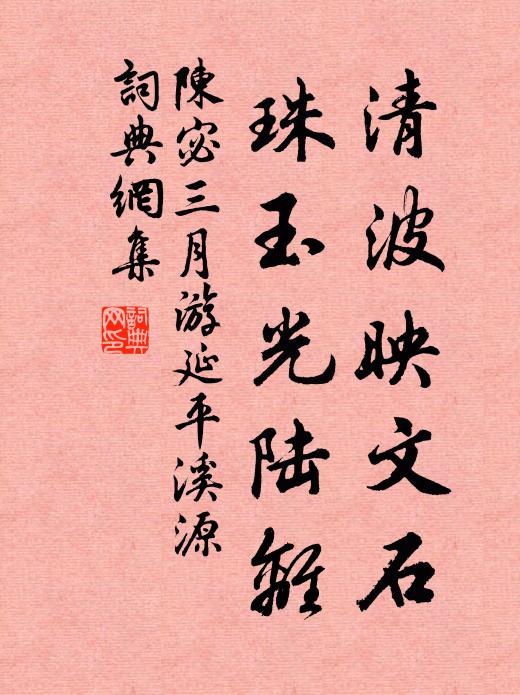 清波映文石
珠玉光陆離
陳宓三月游延平溪源
詞典網集
詞典網印